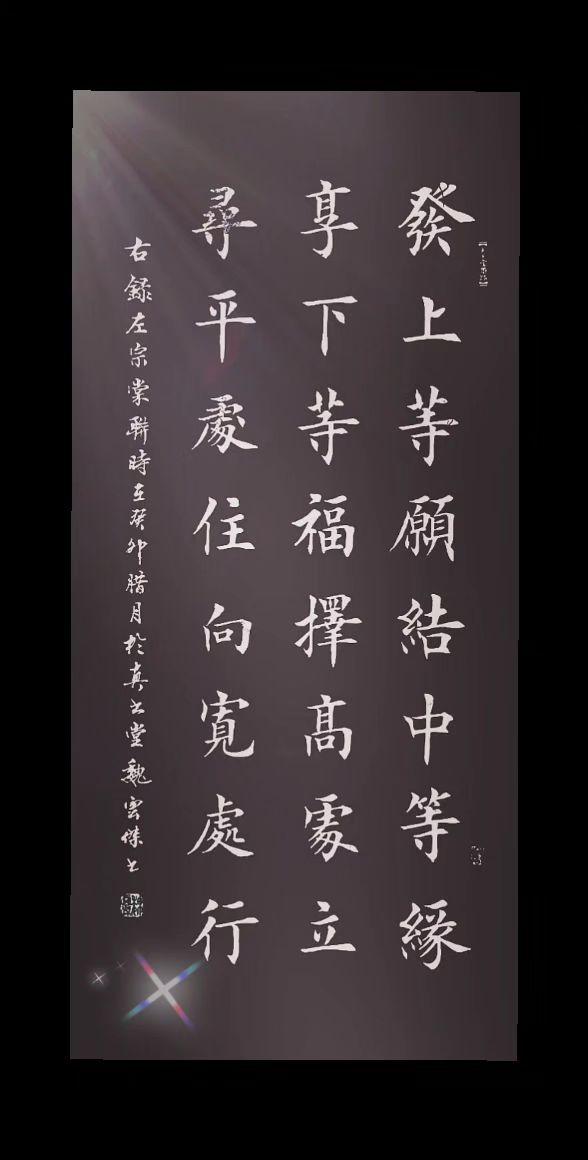 發上等願結中等緣
享下等福擇高處立
尋平處住向寬處行
右録左宗棠聯時在癸卯腊月於真書堂魏雲傑書